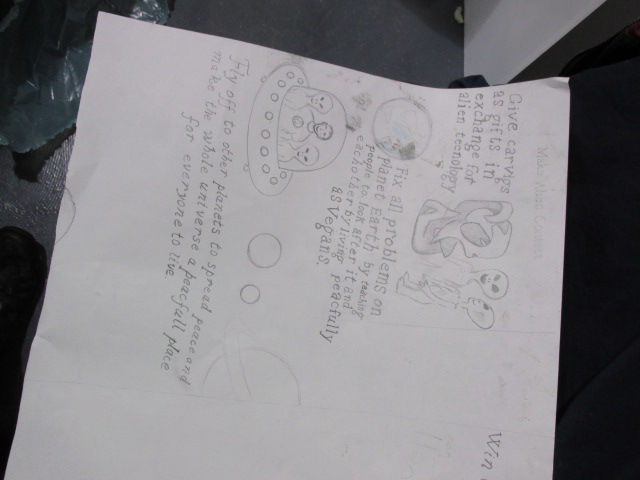 Give carvigs
as gifts in
exchange for
alien tecnology
Fix all problems on
planet Earth by
people to look after it and
eachother by living peacfully
as vegans.
Fly off to other planets to spread peace and
make the whole universe a peacfull place
for everyone to live.
Win